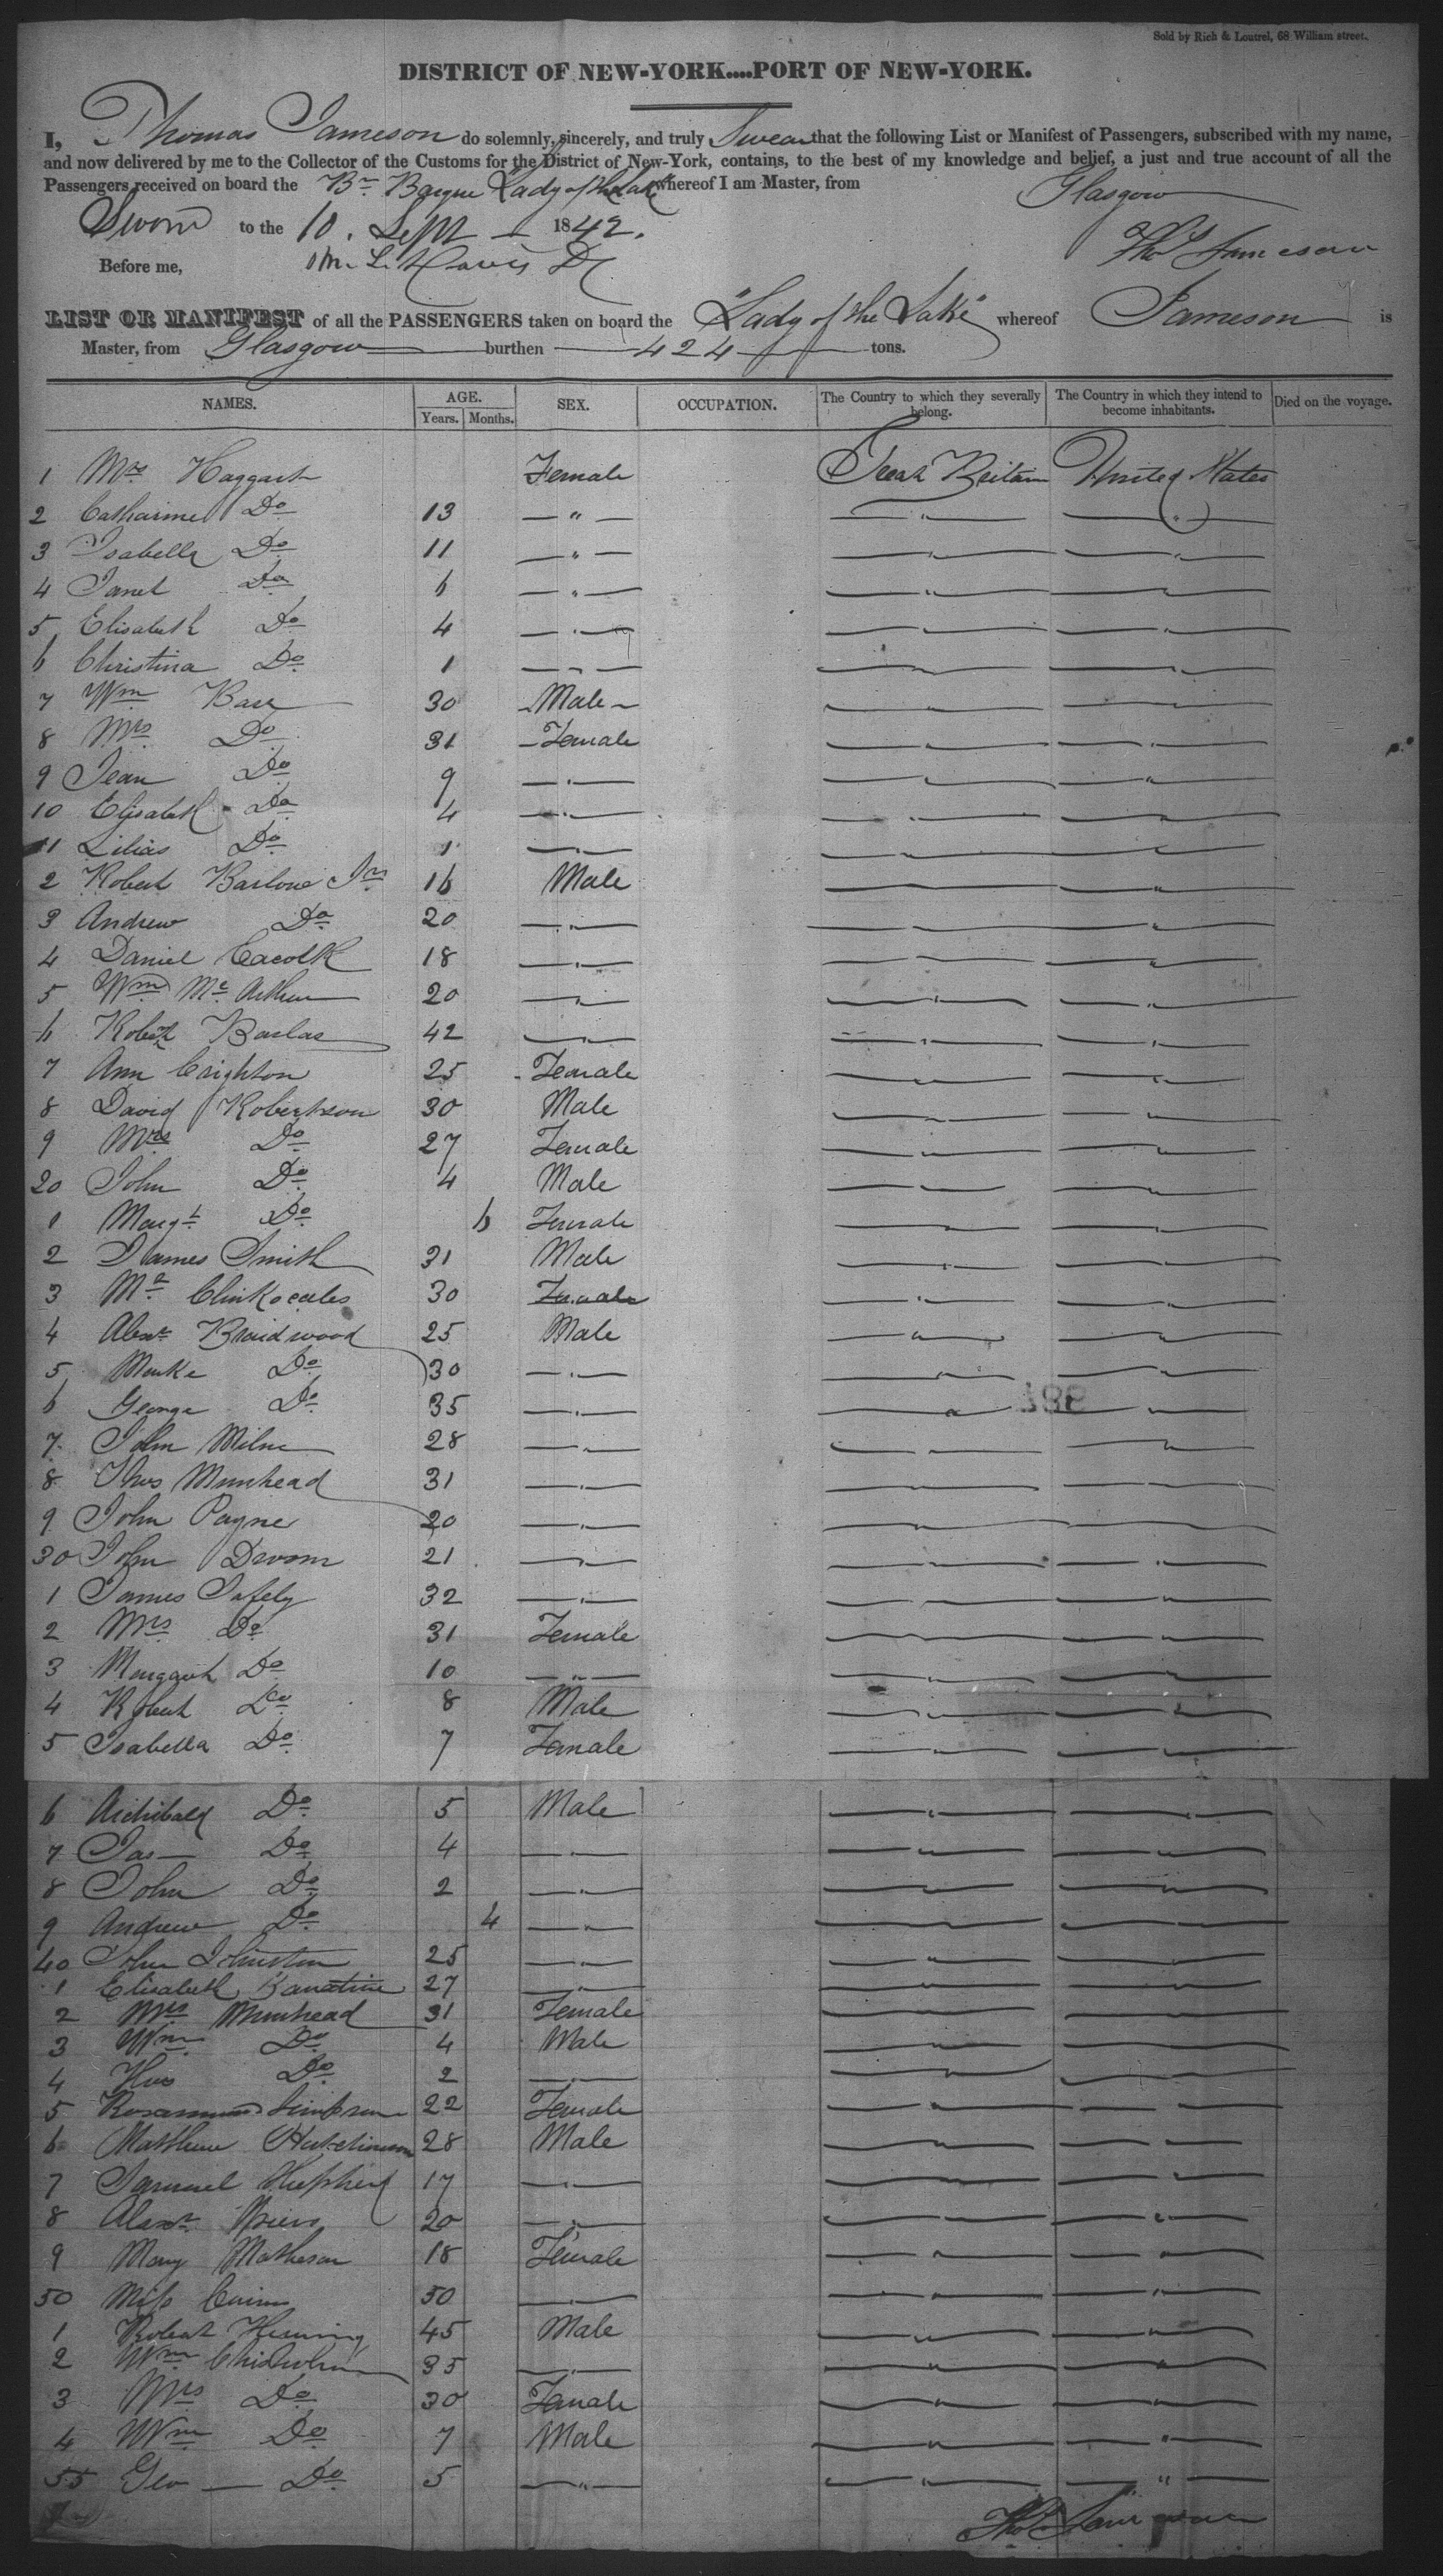 Sold by Rich & Loutrel, 68 William street.
DISTRICT OF NEW-YORK....PORT OF NEW-YORK.
I, Thomas Jameson do solemnly, sincerely, and truly Swear that the following List or Manifest of Passengers, subscribed with my name,
and now delivered by me to the Collector of the Customs for the District of New-York, contains, to the best of my knowledge and belief, a just and true account of all the
Passengers received on board the Br Barque Lady of the Lake whereof I am Master, from Glasgow
Sworn to the 10. Sept 1842.
Thos Jameson
Before me,
LIST OR MANIFEST of all the PASSENGERS taken on board the "Lady of the Lake" whereof Jameson is
Master, from Glasgow burthen 424 tons.
NAMES. AGE. Years. Months. SEX. OCCUPATION. The Country to which they severally belong. The Country in which they intend to become inhabitants. Died on the voyage.
1 Mrs Haggart Female Great Britain United States
2 Catharine Do 13 — " — — " — — " —
3 Isabella Do 11 — " — — " — — " —
4 Janet Do 6 — " — — " — — " —
5 Elisabeth Do 4 — " — — " — — " —
6 Christina Do 1 — " — — " — — " —
7 Wm Barr 30 Male — " — — " —
8 Mrs Do 31 Female — " — — " —
9 Jean Do 9 — " — — " — — " —
10 Elisabeth Do 4 — " — — " — — " —
11 Lilias Do 1 — " — — " — — " —
2 Robert Jnr 16 Male — " — — " —
3 Andrew Do 20 — " — — " — — " —
4 Daniel 18 — " — — " — — " —
5 Wm Mc Arthur 20 — " — — " — — " —
6 Robert Barlas 42 — " — — " — — " —
7 Ann Crighton 25 Female — " — — " —
8 David Robertson 30 Male — " — — " —
9 Mrs Do 27 Female — " — — " —
20 John Do 4 Male — " — — " —
1 Margt Do 6 Female — " — — " —
2 James Smith 31 Male — " — — " —
3 Mr Clinkscales 30 Female — " — — " —
4 Alexr Braidwood 25 Male — " — — " —
5 Do 30 — " — — " — — " —
6 George Do 35 — " — — " — — " —
7 John Milne 28 — " — — " — — " —
8 Thos Muirhead 31 — " — — " — — " —
9 John Payne 20 — " — — " — — " —
30 John 21 — " — — " — — " —
1 James Tafely 32 — " — — " — — " —
2 Mrs Do 31 Female — " — — " —
3 Margaret Do 10 — " — — " — — " —
4 Robert Do 8 Male — " — — " —
5 Isabella Do 7 Female — " — — " —
6 Archibald Do 5 Male — " — — " —
7 Jas Do 4 — " — — " — — " —
8 John Do 2 — " — — " — — " —
9 Andrew Do 4 — " — — " — — " —
40 John Johnston 25 — " — — " — — " —
1 Elisabeth 27 — " — — " — — " —
2 Mrs Muirhead 31 Female — " — — " —
3 Wm Do 4 Male — " — — " —
4 Thos Do 2 — " — — " — — " —
5 Rosamund Simpson 22 Female — " — — " —
6 Matthew Hutchinson 28 Male — " — — " —
7 Samuel Shepherd 17 — " — — " — — " —
8 Alexr 20 — " — — " — — " —
9 Mary Matheson 18 Female — " — — " —
50 Miss 50 — " — — " — — " —
1 Robert 45 Male — " — — " —
2 Wm Chisholm 35 — " — — " — — " —
3 Mrs Do 30 Female — " — — " —
4 Wm Do 7 Male — " — — " —
55 Geo Do 5 — " — — " — — " —
Thos Jameson